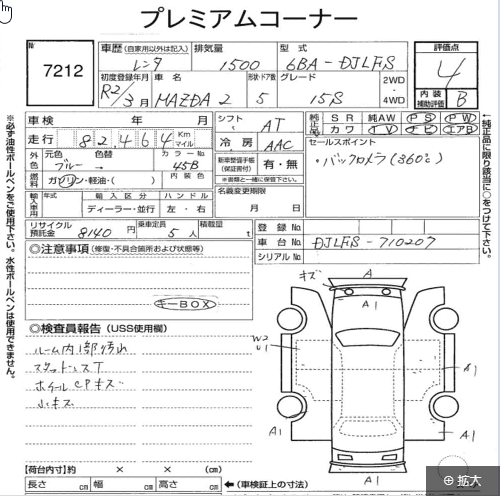 プレミアムコーナー
№ 7212
車歴 (自家用以外は記入) レンタ
排気量 1500
型式 6BA-DJLFS
初度登録年月 R2/3月
車名 MAZDA 2
形状・ドア数 5
グレード 15S
2WD・4WD
評価点 4
内装補助評価 B
車検 年 月
走行 82,464 Km マイル
シフト AT
冷房 AAC
純正品 SR 純AW PS PW
カワ TV ナビ エアB
外色 元色 ブルー 色替 → カラーNo 45B
燃料 ガソリン・軽油・( ) 内装色
新車整備手帳(保証書付) 有・無
※書類と一緒に保管下さい。
セールスポイント
・バックカメラ(360℃)
輸入車用 年式 輸入区分 ディーラー・並行 ハンドル 左・右
名義変更期限 月 日
リサイクル預託金 8140円
乗車定員 5人
積載量 t
登録No
車台No DJLFS-710207
シリアルNo
◎注意事項 (修復・不具合箇所および状態等)
キーBOX
◎検査員報告 (USS使用欄)
ルーム内 汚れ
スタットレスT
ホイールCPキズ
小キズ
キズ
A
A1
W2
U1
A1
A1
A1
A1
【荷台内寸】約 × × (cm)
長さ cm 幅 cm 高さ cm
←(車検証上の寸法)
※必ず油性ボールペンをご使用下さい。水性ボールペンは使用できません。
←純正品に限り該当に○をつけて下さい。
拡大